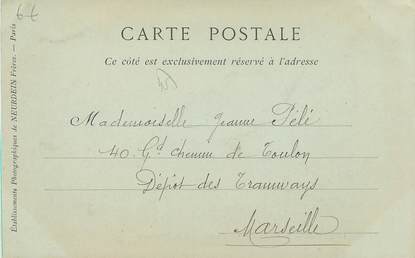 6 €
CARTE POSTALE
Ce côté est exclusivement réservé à l'adresse
Mademoiselle Jeanne Pélé
40. Gd chemin de Toulon
Dépôt des Tramways
Marseille
Établissements Photographiques de NEURDEIN Frères. — Paris